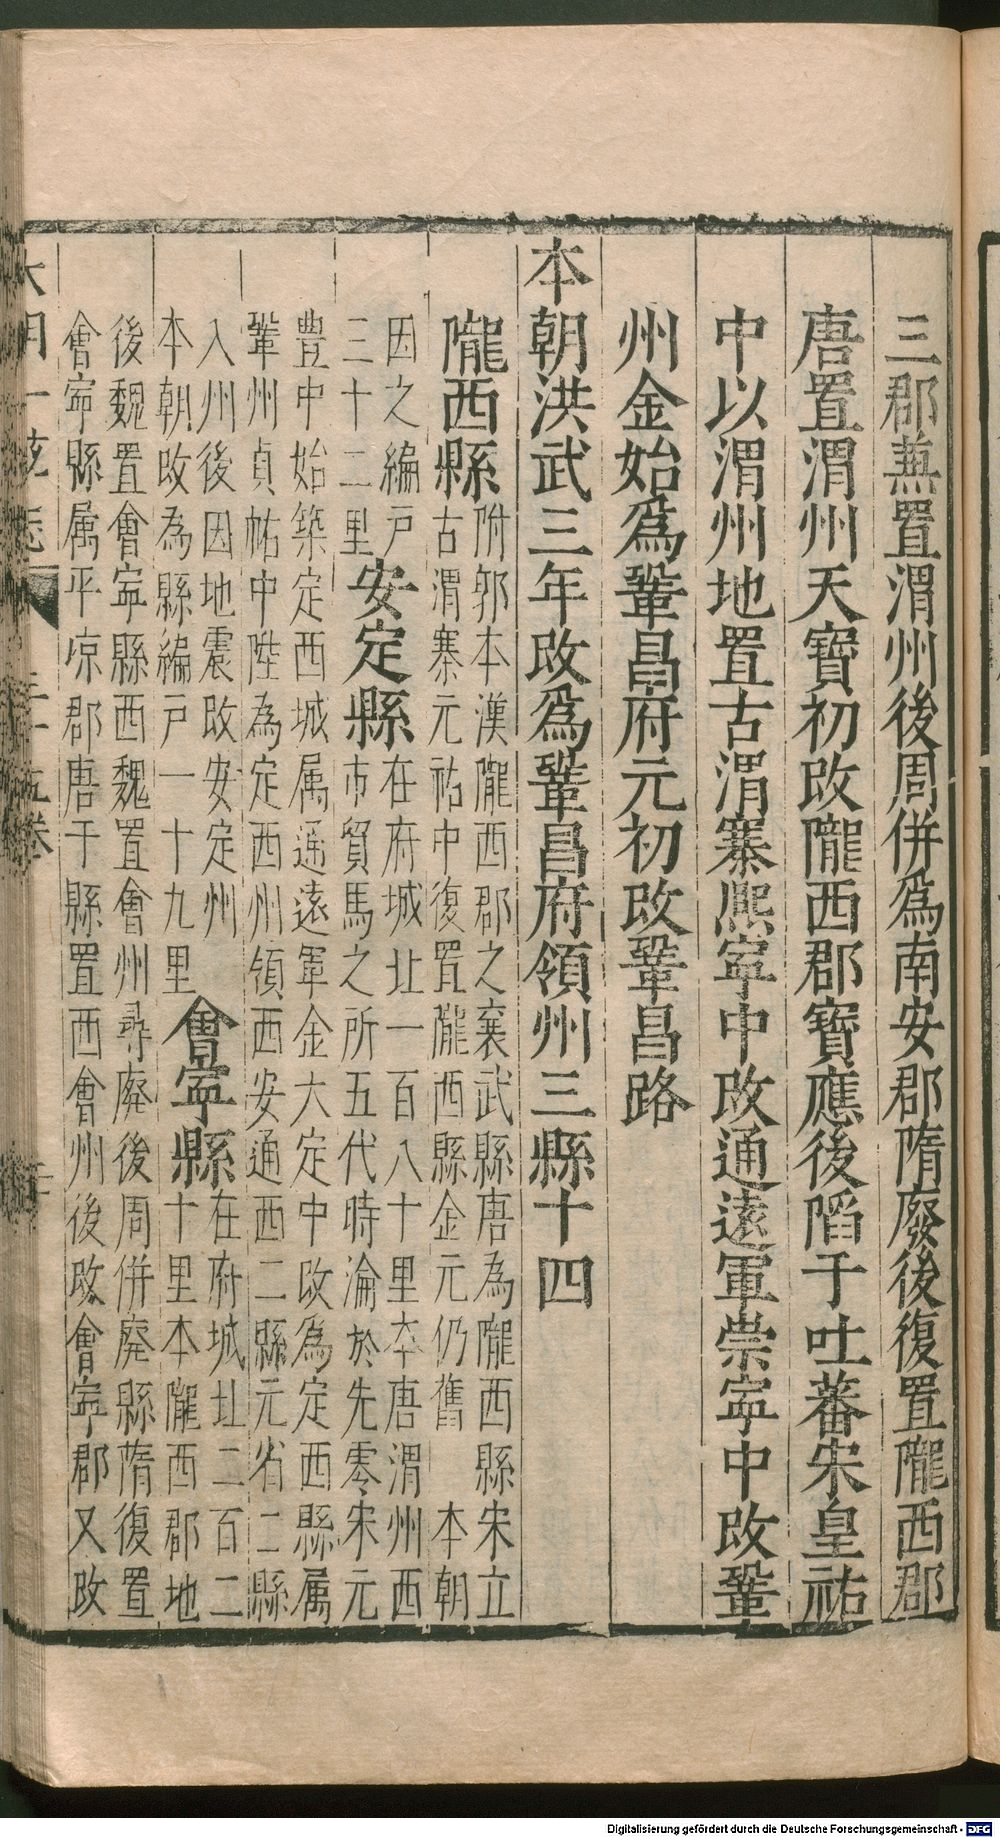 三郡蕪置渭州後周併爲南安郡隋廢後復置隴西郡
唐置渭州天寶初改隴西郡寶應後䧟于吐蕃宋皇祐
中以渭州地置古渭寨熈寧中改通遠軍崇寧中改鞏
州金始爲鞏昌府元初改鞏昌路
本朝洪武三年改爲鞏昌府領州三縣十四
隴西縣
附郭本漢隴西郡之襄武縣唐為隴西縣宋立
古渭寨元祐中復置隴西縣金元仍舊 本朝
因之編戸
三十二里
安定縣
在府城北一百八十里本唐渭州西
市貿馬之所五代時淪於先零宋元
豊中始築定西城属通遠軍金大定中改為定西縣属
鞏州貞祐中陞為定西州領西安通西二縣元省二縣
入州後因地震改安定州
本朝改為縣編戸一十九里
會寧縣
在府城北二百二
十里本隴西郡地
後魏置會寧縣西魏置會州尋廢後周併廢縣隋復置
會寧縣属平凉郡唐于縣置西會州後改會寧郡又改
大明一統志 三十五卷
Digitalisierung gefördert durch die Deutsche Forschungsgemeinschaft - DFG